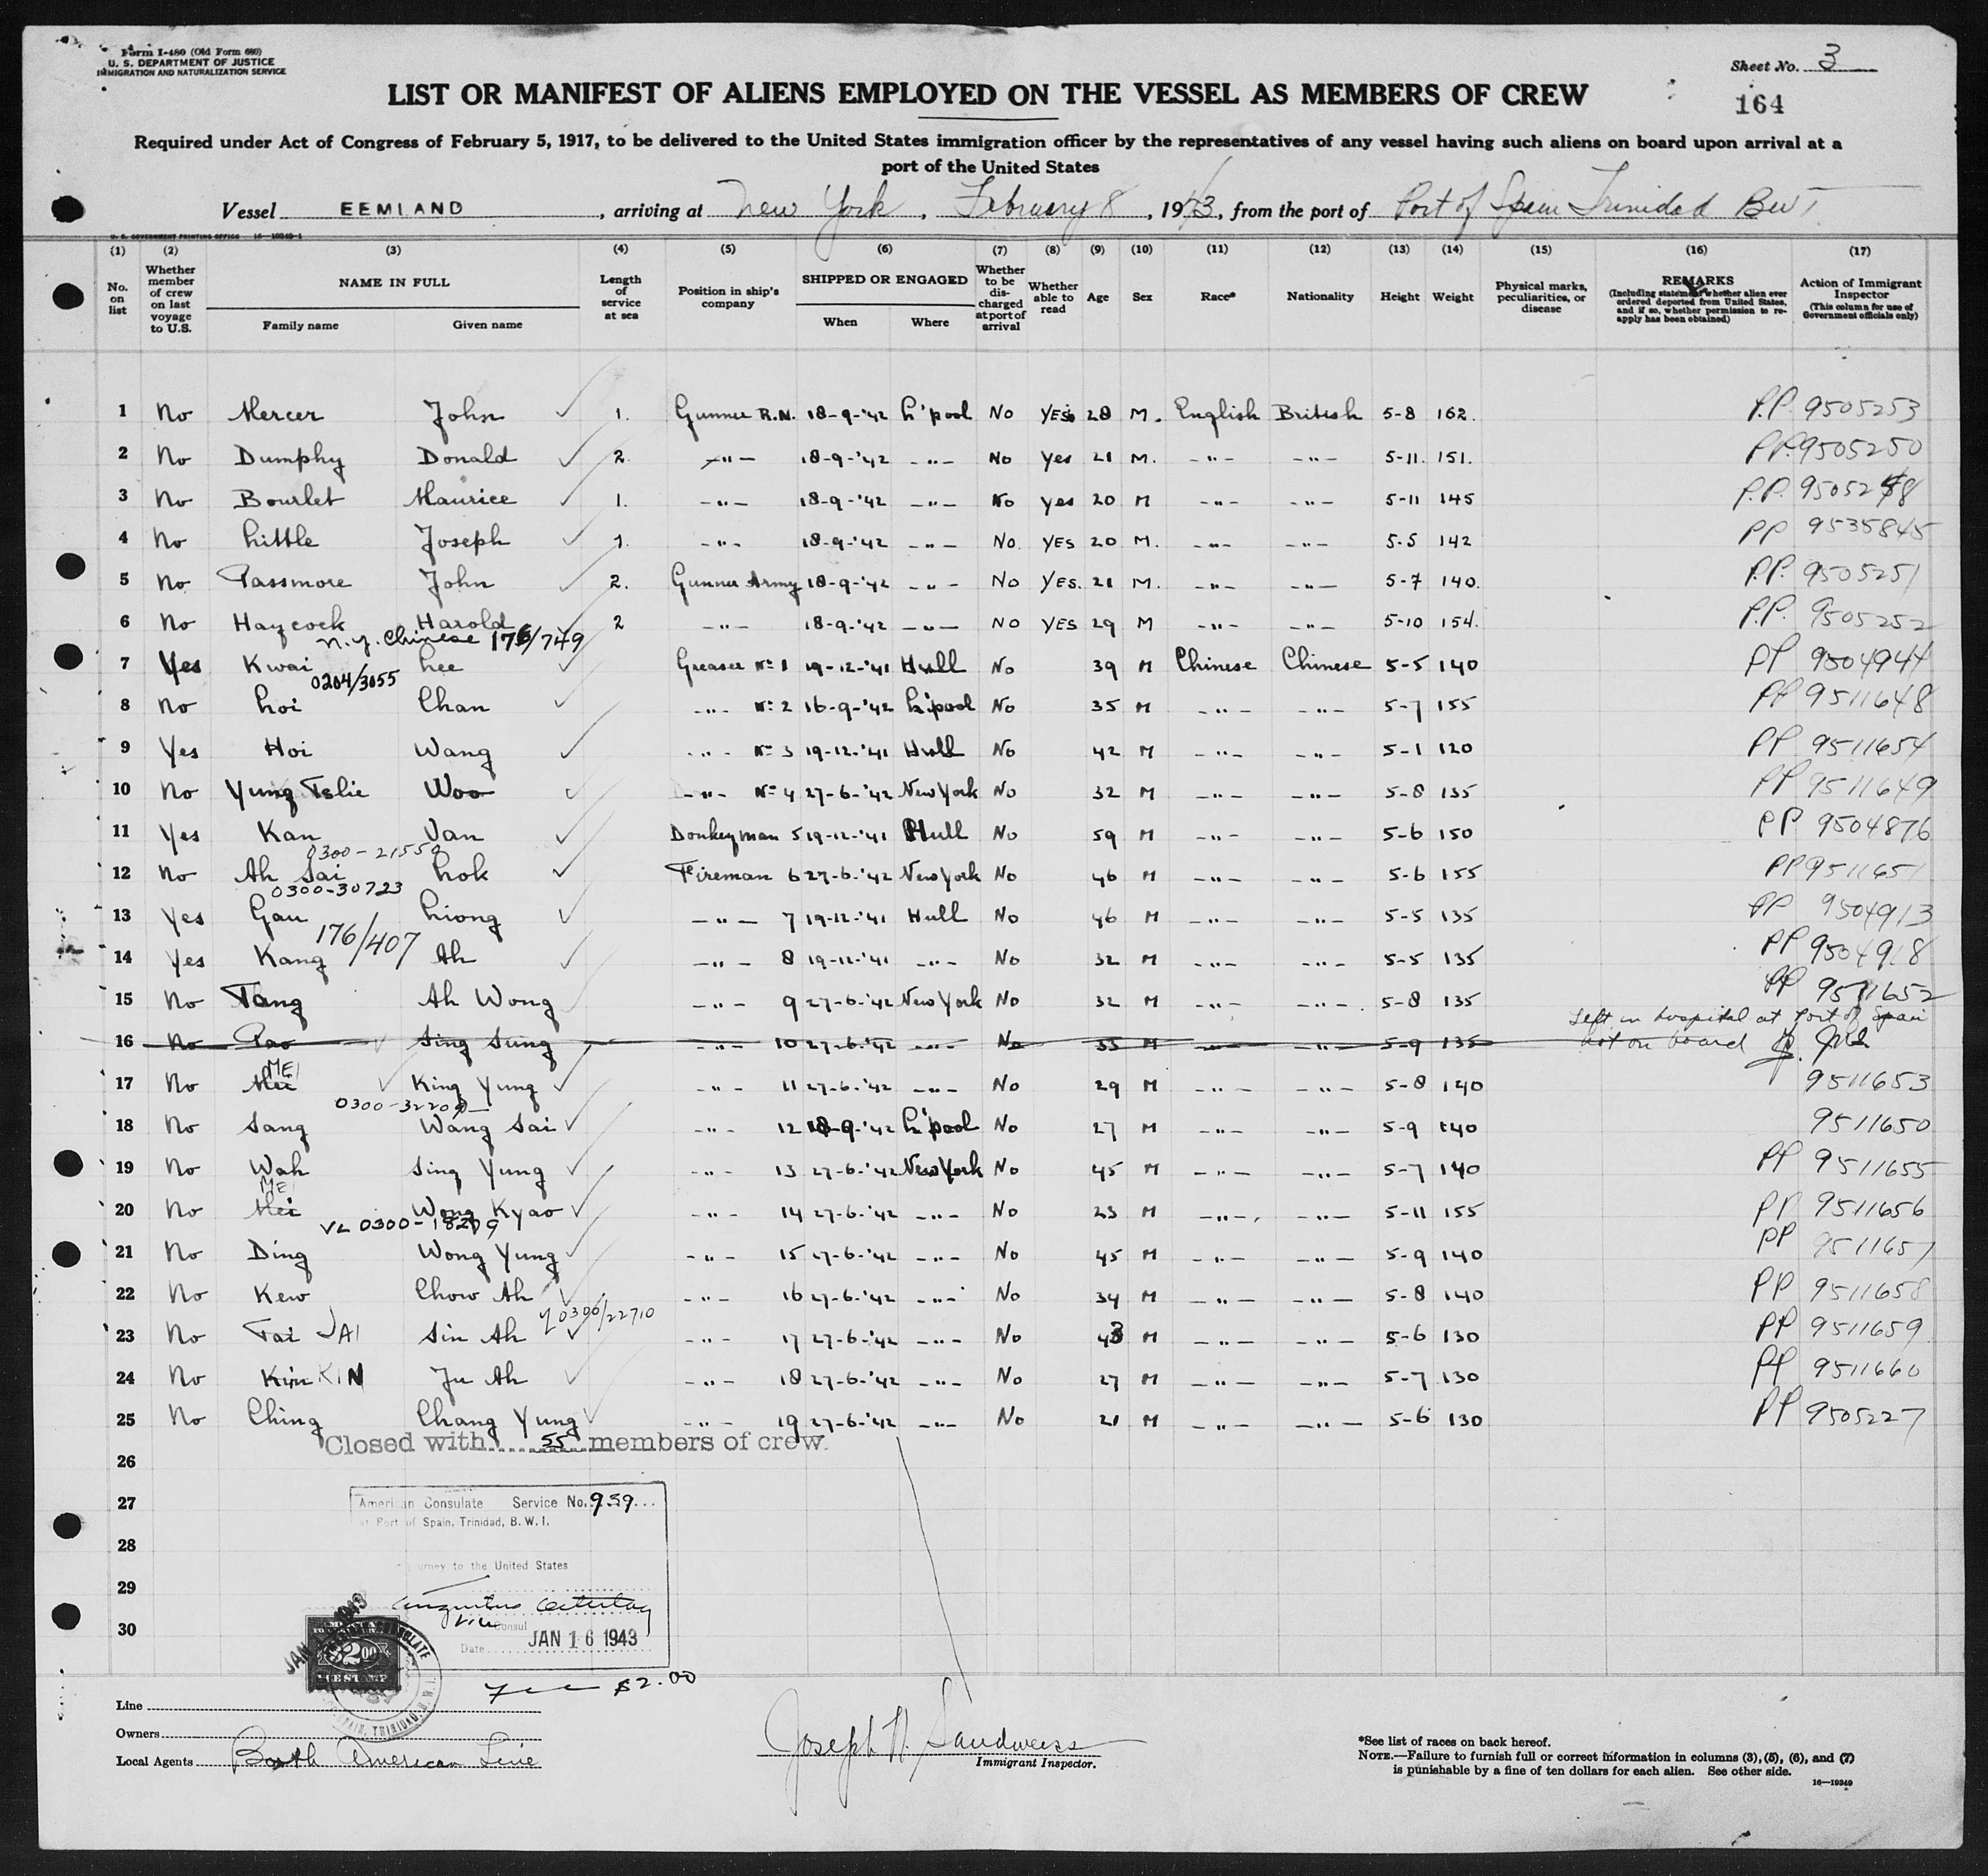 Form I-480 (Old Form 680)
U. S. DEPARTMENT OF JUSTICE
IMMIGRATION AND NATURALIZATION SERVICE
Sheet No. 3
164
LIST OR MANIFEST OF ALIENS EMPLOYED ON THE VESSEL AS MEMBERS OF CREW
Required under Act of Congress of February 5, 1917, to be delivered to the United States immigration officer by the representatives of any vessel having such aliens on board upon arrival at a
port of the United States
Vessel EEMLAND, arriving at New York, February 8, 1943, from the port of Port of Spain Trinidad BWI
U. S. GOVERNMENT PRINTING OFFICE 16-19349-1
(1) (2) (3) (4) (5) (6) (7) (8) (9) (10) (11) (12) (13) (14) (15) (16) (17)
No. on list
Whether member of crew on last voyage to U.S.
NAME IN FULL
Family name Given name
Length of service at sea
Position in ship's company
SHIPPED OR ENGAGED
When Where
Whether to be discharged at port of arrival
Whether able to read
Age
Sex
Race*
Nationality
Height
Weight
Physical marks, peculiarities, or disease
REMARKS
(Including statement whether alien ever ordered deported from United States, and if so, whether permission to reapply has been obtained)
Action of Immigrant Inspector
(This column for use of Government officials only)
1 No Mercer John 1. Gunner R.N. 18-9-'42 L'pool No Yes 28 M. English British 5-8 162. P.P. 9505253
2 No Dumphy Donald 2. -"- 18-9-'42 -"- No Yes 21 M. -"- -"- 5-11. 151. P.P. 9505250
3 No Bourlet Maurice 1. -"- 18-9-'42 -"- No Yes 20 M -"- -"- 5-11 145 P.P. 9505248
4 No Little Joseph 1. -"- 18-9-'42 -"- No. Yes 20 M. -"- -"- 5-5 142 PP 9535845
5 No Passmore John 2. Gunner Army 18-9-'42 -"- No Yes. 21 M. -"- -"- 5-7 140. P.P. 9505251
6 No Haycock Harold 2 -"- 18-9-'42 -"- No Yes 29 M -"- -"- 5-10 154. P.P. 9505252
N.Y. Chinese 176/749
7 Yes Kwai Lee Greaser No 1 19-12-'41 Hull No 39 M Chinese Chinese 5-5 140 PP 9504944
0204/3055
8 No Loi Chan -"- No 2 16-9-'42 L'pool No 35 M -"- -"- 5-7 155 PP 9511648
9 Yes Hoi Wang -"- No 3 19-12-'41 Hull No 42 M -"- -"- 5-1 120 PP 9511654
10 No Yung Tslie Woo -"- No 4 27-6-'42 New York No 32 M -"- -"- 5-8 135 PP 9511649
11 Yes Kan Van Donkeyman 5 19-12-'41 Hull No 59 M -"- -"- 5-6 150 PP 9504876
0300-21550
12 No Ah Sai Lok Fireman 6 27-6-'42 New York No 46 M -"- -"- 5-6 155 PP 9511651
0300-30723
13 Yes Gau Liong -"- 7 19-12-'41 Hull No 46 M -"- -"- 5-5 135 PP 9504913
176/407
14 Yes Kang Ah -"- 8 19-12-'41 -"- No 32 M -"- -"- 5-5 135 PP 9504918
15 No Tang Ah Wong -"- 9 27-6-'42 New York No 32 M -"- -"- 5-8 135 PP 9511652
Left in hospital at Port of Spain
16 No Pao Sing Sung -"- 10 27-6-'42 -"- No 35 M -"- -"- 5-9 135 Not on board
17 No Mei MEI King Yung -"- 11 27-6-'42 -"- No 29 M -"- -"- 5-8 140 9511653
0300-32209
18 No Sang Wang Sai -"- 12 18-9-'42 L'pool No 27 M -"- -"- 5-9 140 9511650
19 No Wah Sing Yung -"- 13 27-6-'42 New York No 45 M -"- -"- 5-7 140 PP 9511655
20 No Mei MEI Wong Kyao -"- 14 27-6-'42 -"- No 23 M -"- -"- 5-11 155 PP 9511656
VL 0300-18279
21 No Ding Wong Yung -"- 15 27-6-'42 -"- No 45 M -"- -"- 5-9 140 PP 9511657
22 No Kew Chow Ah -"- 16 27-6-'42 -"- No 34 M -"- -"- 5-8 140 PP 9511658
0300/22710
23 No Tai JAI Sin Ah -"- 17 27-6-'42 -"- No 43 M -"- -"- 5-6 130 PP 9511659
24 No Kin KIN Ju Ah -"- 18 27-6-'42 -"- No 27 M -"- -"- 5-7 130 PP 9511660
25 No Ching Chang Yung -"- 19 27-6-'42 -"- No 21 M -"- -"- 5-6 130 PP 9505227
Closed with 55 members of crew.
26
27
28
29
30
American Consulate Service No. 959
at Port of Spain, Trinidad, B. W. I.
Journey to the United States
Vice Consul
Date JAN 16 1943
Fee $2.00
Line
Owners
Local Agents Booth American Line
Joseph N. Sandweiss
Immigrant Inspector.
*See list of races on back hereof.
NOTE.—Failure to furnish full or correct information in columns (3), (5), (6), and (7)
is punishable by a fine of ten dollars for each alien. See other side.
16-19349